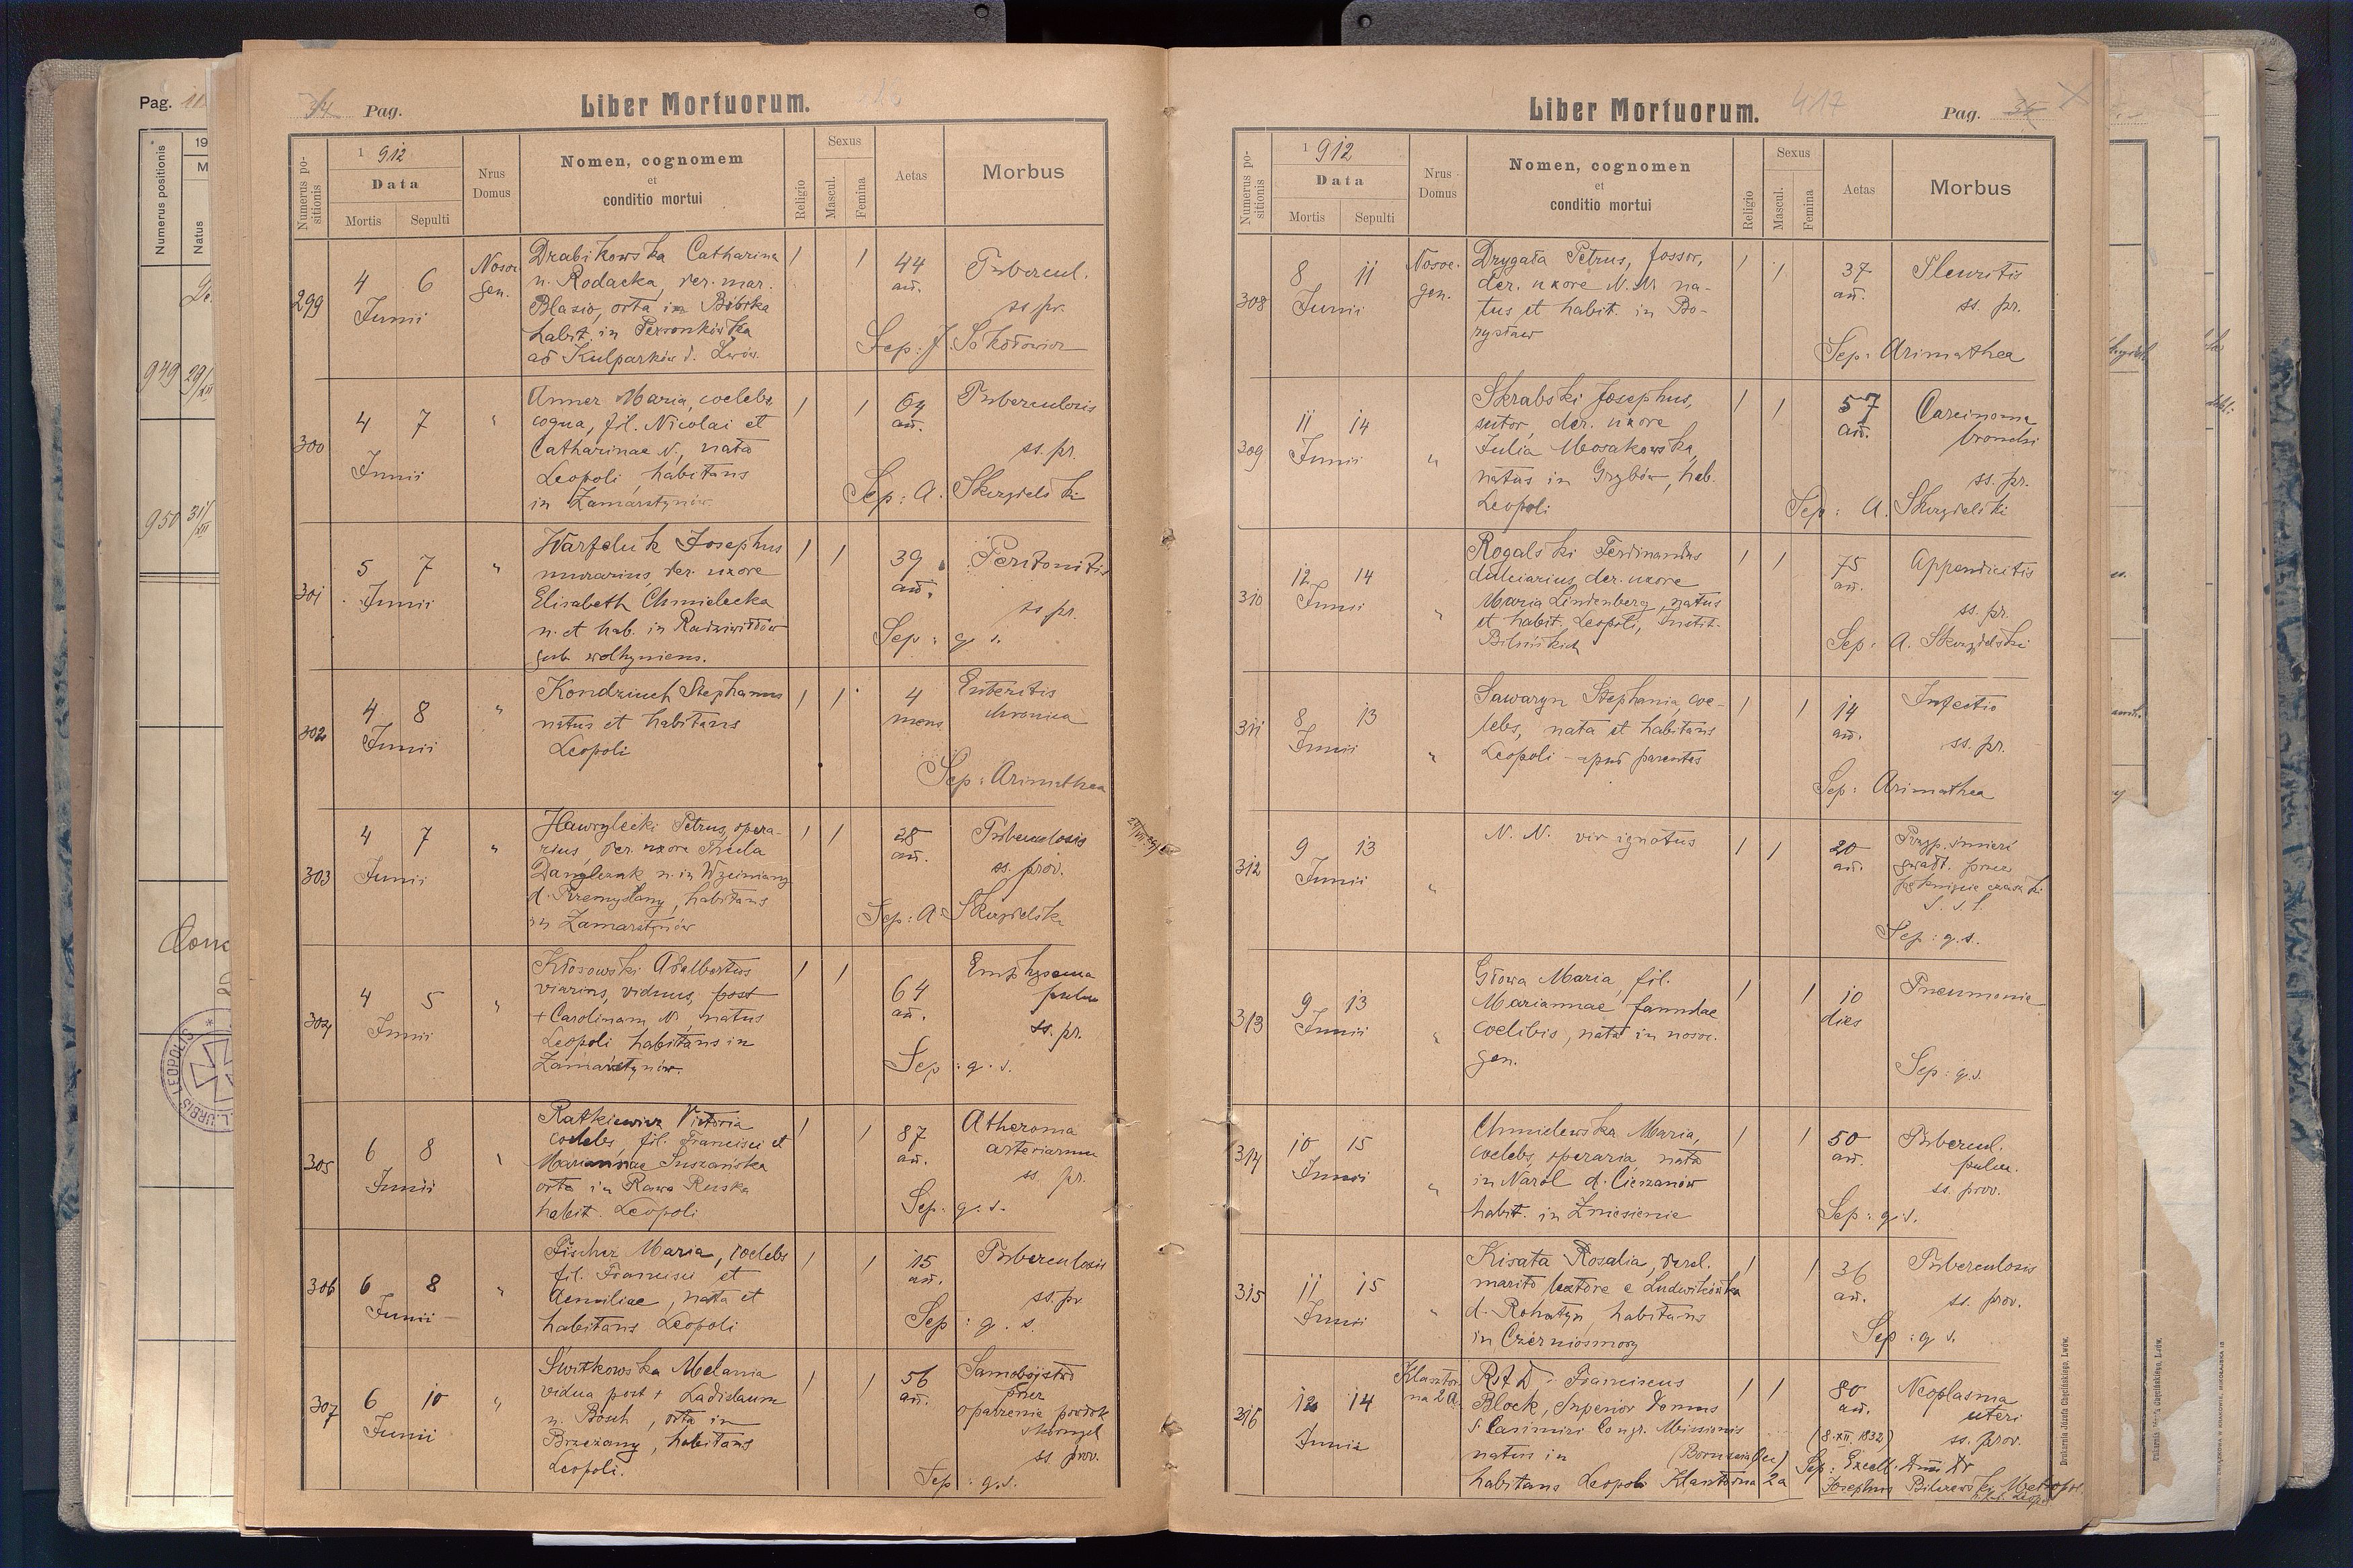 Pag.
Numerus positionis
Natus
949 29/XII
950 31/XII
34 Pag.
Liber Mortuorum.
Numerus positionis
1912
Data
Mortis
Sepulti
Nrus Domus
Nomen, cognomem
et
conditio mortui
Religio
Sexus
Mascul.
Femina
Aetas
Morbus
299
4 6
Junii
Nosoc. gen.
Drabikowska Catharina
n. Rodacka, der. mar.
Blasio, orta in Bóbrka
habit. in Persenkówka
ad Kulparków d. Lwów
1 1
44 an.
Tubercul.
ss. pr.
Sep: J. Sokołowicz
300
4 7
Junii
"
Anner Maria, coelebs
coqua, fil. Nicolai et
Catharinae N., nata
Leopoli, habitans
in Zamarstynów
1 1
64 an.
Tuberculosis
ss. pr.
Sep: A. Skurzielski
301
5 7
Junii
"
Josephus
murarius, der. uxore
Elisabeth Chmielecka
n. et hab. in Radziwiłłów
gub. wolhyniens.
1 1
39 an.
Peritonitis
ss pr.
Sep: g. s.
302
4 8
Junii
"
Kondziuch Stephanus
natus et habitans
Leopoli
1 1
4 mens.
Enteritis
chronica
Sep: Arimathea
303
4 7
Junii
"
Hawrylecki Petrus, opera-
rius, der. uxore Thecla
n. in
d. Przemyślany, habitans
in Zamarstynów
1 1
28 an.
Tuberculosis
ss. prov.
Sep: A. Skurzielski
304
4 5
Junii
"
Kłosowski Adalbertus
viarius, viduus, post
+ Carolinam N., natus
Leopoli habitans in
Zamarstynów.
1 1
64 an.
Emphysema
pulm
ss. pr.
Sep: g. s.
305
6 8
Junii
"
Ratkiewicz Victoria
coelebs, fil. Francisci et
Mariannae Suszańska
orta in Rawa Ruska
habit. Leopoli
1 1
87 an.
Atheroma
arteriarum
ss. pr.
Sep: g. s.
306
6 8
Junii
"
Fischer Maria, coelebs
fil. Francisci et
Aemiliae, nata et
habitans Leopoli
1 1
15 an.
Tuberculosis
ss. pr
Sep: g. s.
307
6 10
Junii
"
Świtkowska Melania
vidua post + Ladislaum
n. Bosch, orta in
Brzeżany, habitans
Leopoli.
1 1
56 an.
Samobójstwo
przez
oparzenie
ss. prov.
Sep: g. s.
Liber Mortuorum.
417
Pag.
Numerus positionis
1912
Data
Mortis
Sepulti
Nrus Domus
Nomen, cognomen
et
conditio mortui
Religio
Sexus
Mascul.
Femina
Aetas
Morbus
308
8 11
Junii
Nosoc. gen.
Drygała Petrus, fossor,
der. uxore N. N. na-
tus et habit. in Bo-
rysław
1 1
37 an.
Pleuritis
ss. pr.
Sep: Arimathea
309
11 14
Junii
"
Skrabski Josephus,
sutor, der. uxore
Julia Mosakowska,
natus in Grybów, hab.
Leopoli
1 1
57 an.
Carcinoma
bronchi
ss. pr.
Sep: A. Skurzielski
310
12 14
Junii
"
Rogalski Ferdinandus
dulciarius, der. uxore
Maria Lindenberg, natus
et habit. Leopoli, Instit.
Bilińskich
1 1
75 an.
Appendicitis
ss. pr.
Sep: A. Skurzielski
311
8 13
Junii
"
Sawaryn Stephania, coe-
lebs, nata et habitans
Leopoli - apud parentes
1 1
14 an.
Infectio
ss. pr.
Sep: Arimathea
312
9 13
Junii
"
N. N. vir ignotus
1 1
20 an.
Przyp. śmierć
gwałt. przez
pęknięcie czaszki
s. s. f.
Sep: g. s.
313
9 13
Junii
"
Głowa Maria, fil.
Mariannae famulae
coelibis, nata in nosoc.
gen.
1 1
10 dies
Pneumonia
Sep: g. s.
314
10 15
Junii
"
Chmielewska Maria,
coelebs, operaria nata
in Narol d. Cieszanów
habit. in Zniesienie
1 1
50 an.
Tubercul.
pulm.
ss. prov.
Sep: g. s.
315
11 15
Junii
"
Kisata Rosalia, derel.
marito Nestore e Ludwikówka
d. Rohatyn, habitans
in
1 1
36 an.
Tuberculosis
ss. prov.
Sep: g. s.
316
12 14
Junii
Klasztorna 2a.
R. D. Franciscus
Block, Superior Domus
S. Casimiri Congr. Missionis
natus in (Borussia)
habitans Leopoli Klasztorna 2a
1 1
80 an.
(8.XII.1832)
Neoplasma
uteri
ss. prov.
Sep: Excell. Dnus Dr
Josephus Bilczewski Metropol.
Drukarnia Józefa Chęcińskiego, Lwów.